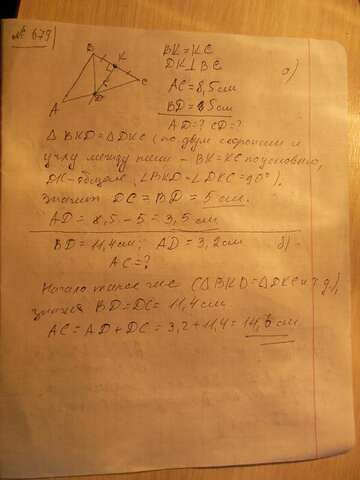 № 679
B
K
C
A
D
5
BK = KC
DK ⊥ BC
а)
AC = 8,5 см
BD = 5 см
AD = ? CD = ?
△ BKD = △ DKC (по двум сторонам и
углу между ними – BK = KC по условию,
DK – общая, ∠BKD = ∠DKC = 90°),
значит DC = BD = 5 см.
AD = 8,5 – 5 = 3,5 см
BD = 11,4 см; AD = 3,2 см б)
AC = ?
Начало такое же (△BKD = △DKC и т.д.),
значит BD = DC = 11,4 см
AC = AD + DC = 3,2 + 11,4 = 14,6 см